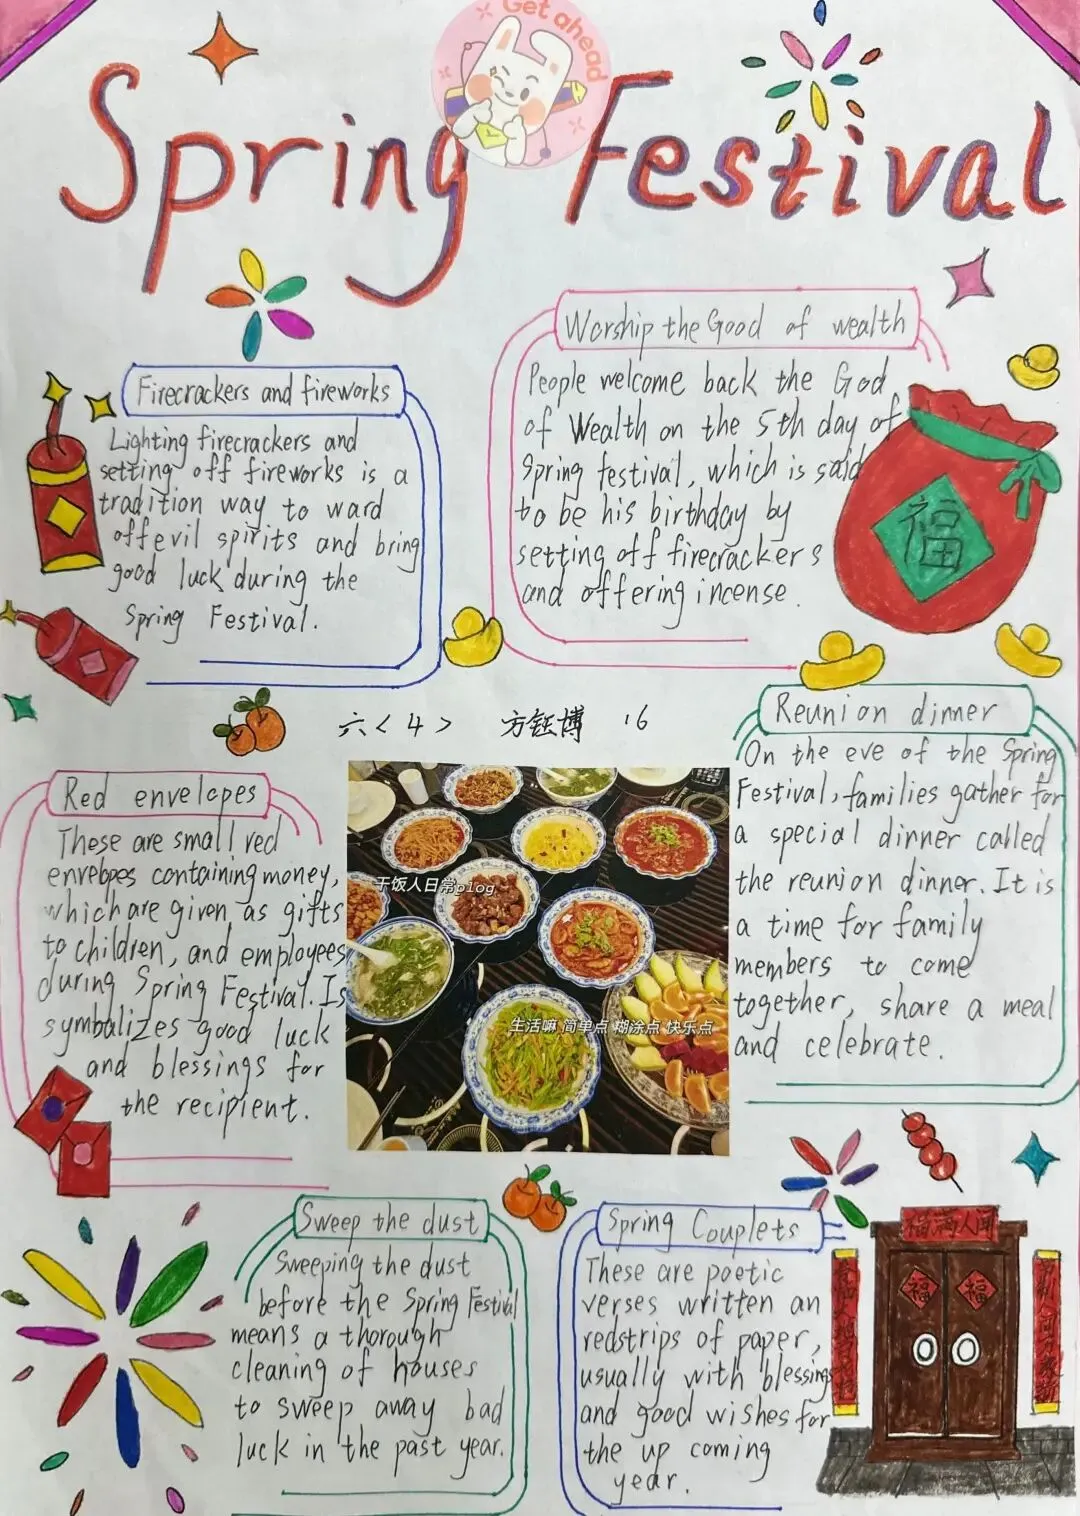 Get ahead
Spring Festival
Firecrackers and fireworks
Lighting firecrackers and
setting off fireworks is a
tradition way to ward
off evil spirits and bring
good luck during the
Spring Festival.
Worship the Good of wealth
People welcome back the God
of Wealth on the 5th day of
Spring festival, which is said
to be his birthday by
setting off firecrackers
and offering incense.
福
六<4> 方钰博 16
Red envelopes
These are small red
envelopes containing money,
which are given as gifts
to children, and employees
during Spring Festival. Is
symbalizes good luck
and blessings for
the recipient.
干饭人日常plog
生活嘛 简单点 糊涂点 快乐点
Reunion dinner
On the eve of the Spring
Festival, families gather for
a special dinner called
the reunion dinner. It is
a time for family
members to come
together, share a meal
and celebrate.
Sweep the dust
Sweeping the dust
before the Spring Festival
means a thorough
cleaning of houses
to sweep away bad
luck in the past year.
Spring Couplets
These are poetic
verses written an
redstrips of paper,
usually with blessings
and good wishes for
the up coming
year.
福满人间
福 福